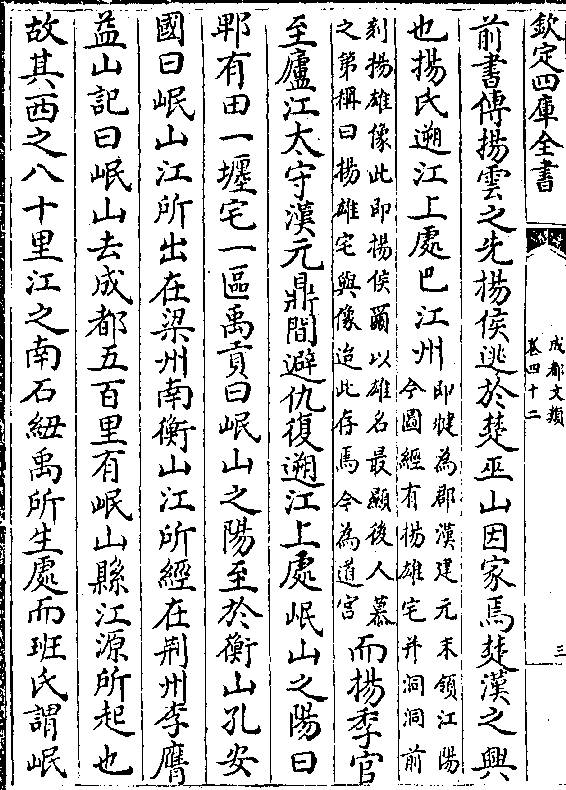 欽定四庫全書
成都文類
卷四十二
三
前書傳揚雲之先揚侯逃於楚巫山因家焉楚漢之興
也揚氏遡江上處巴江州
即犍為郡漢建元末領江陽
今圖經有揚雄宅并洞洞前
刻揚雄像此即揚侯爾以雄名最顯後人慕
之第稱曰揚雄宅與像迨此存焉今為道宫
而揚季官
至廬江太守漢元鼎間避仇復遡江上處岷山之陽曰
郫有田一㙻宅一區禹貢曰岷山之陽至於衡山孔安
國曰岷山江所出在梁州南衡山江所經在荆州李膺
益山記曰岷山去成都五百里有岷山縣江源所起也
故其西之八十里江之南石紐禹所生處而班氏謂岷